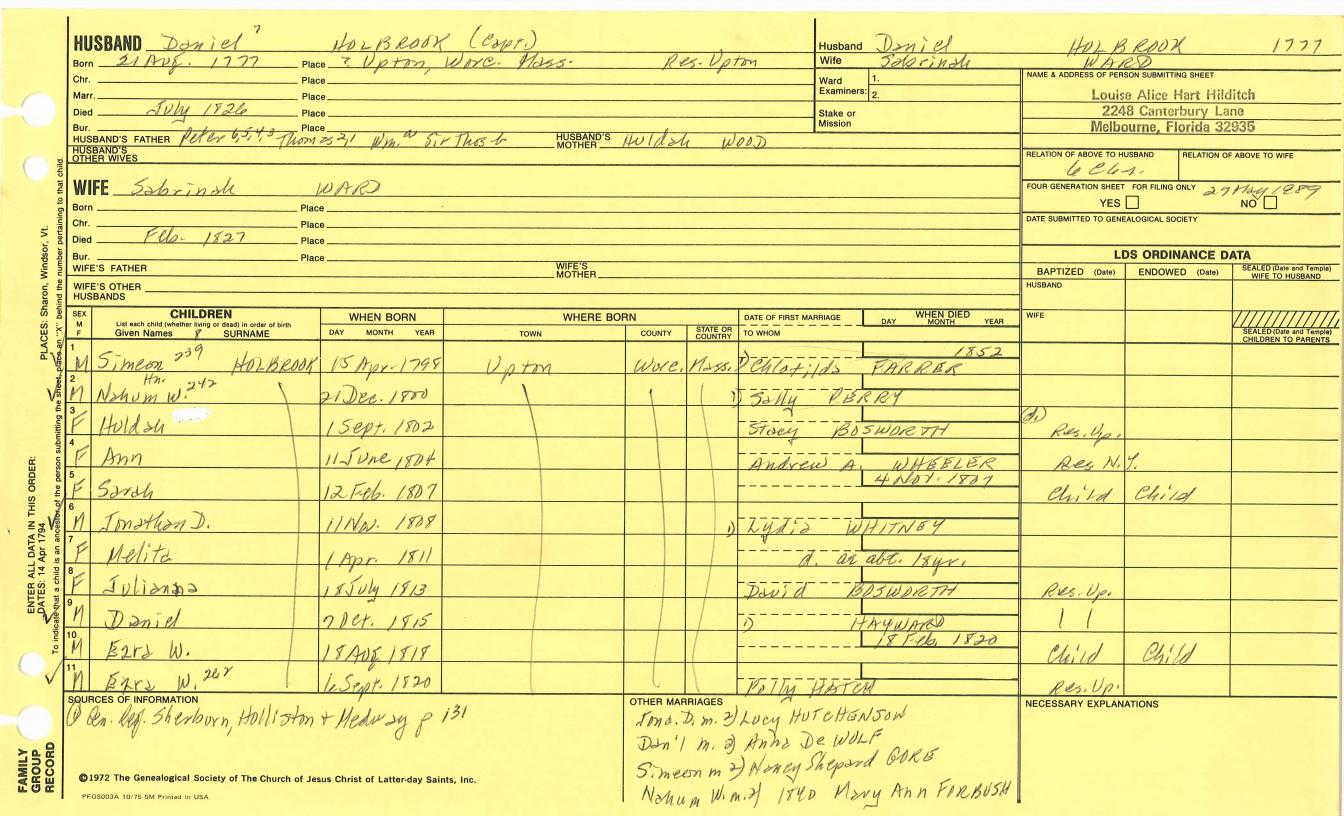 HUSBAND Daniel 7 HOLBROOK (Capt.)
Born 21 Aug. 1777 Place ? Upton, Worc. Mass. Res. Upton
Chr. Place
Marr. Place
Died July 1826 Place
Bur. Place
HUSBAND'S FATHER Peter 6,5,4,3 Thomas 2,1 Wm. Sir Thos HUSBAND'S MOTHER Huldah WOOD
HUSBAND'S OTHER WIVES
WIFE Sabrinah WARD
Born Place
Chr. Place
Died Feb. 1827 Place
Bur. Place
WIFE'S FATHER WIFE'S MOTHER
WIFE'S OTHER HUSBANDS
Husband Daniel HOLBROOK 1777
Wife Sabrinah WARD
Ward Examiners: 1.
2.
Stake or Mission
NAME & ADDRESS OF PERSON SUBMITTING SHEET
Louise Alice Hart Hilditch
2248 Canterbury Lane
Melbourne, Florida 32935
RELATION OF ABOVE TO HUSBAND RELATION OF ABOVE TO WIFE
6 C6r.
FOUR GENERATION SHEET FOR FILING ONLY 27 May 1989
YES NO
DATE SUBMITTED TO GENEALOGICAL SOCIETY
LDS ORDINANCE DATA
BAPTIZED (Date) ENDOWED (Date) SEALED (Date and Temple) WIFE TO HUSBAND
HUSBAND
WIFE
SEALED (Date and Temple) CHILDREN TO PARENTS
SEX M F CHILDREN WHEN BORN WHERE BORN DATE OF FIRST MARRIAGE WHEN DIED
List each child (whether living or dead) in order of birth
Given Names 8 SURNAME DAY MONTH YEAR TOWN COUNTY STATE OR COUNTRY TO WHOM DAY MONTH YEAR
1 M Simeon 239 HOLBROOK 15 Apr. 1798 Upton Worc. Mass. 1) Chlotilda FARRER 1852
2 M Nahum W. Hn. 242 21 Dec. 1800 1) Sally PERRY
3 F Huldah 1 Sept. 1802 Stacy BOSWORTH Res. Up.
4 F Ann 11 June 1804 Andrew A. WHEELER Res N.Y.
5 F Sarah 12 Feb. 1807 4 Nov. 1807 Child Child
6 M Jonathan D. 11 Nov. 1808 1) Lydia WHITNEY
7 F Melita 1 Apr. 1811 d. ae abt. 18yr.
8 F Julianna 18 July 1813 David BOSWORTH Res. Up.
9 M Daniel 7 Oct. 1815 1) HAYWARD 11
10 M Ezra W. 18 Aug 1818 18 Feb. 1820 Child Child
11 M Ezra W. 262 6 Sept. 1820 Polly HATCH Res. Up.
SOURCES OF INFORMATION
1 Gen. Reg. Sherburn, Holliston + Medway p 131
OTHER MARRIAGES
Jona. D. m. 2) Lucy HUTCHENSON
Dan'l m. 2) Anna De WOLF
Simeon m 2) Nancy Shepard GORE
Nahum W. m. 2) 1840 Mary Ann FORBUSH
NECESSARY EXPLANATIONS
©1972 The Genealogical Society of The Church of Jesus Christ of Latter-day Saints, Inc.
PFGS003A 10/75 5M Printed in USA
FAMILY GROUP RECORD
ENTER ALL DATA IN THIS ORDER:
DATES: 14 Apr 1794
PLACES: Sharon, Windsor, Vt.
To indicate that a child is an ancestor of the person submitting the sheet, place an "X" behind the number pertaining to that child.